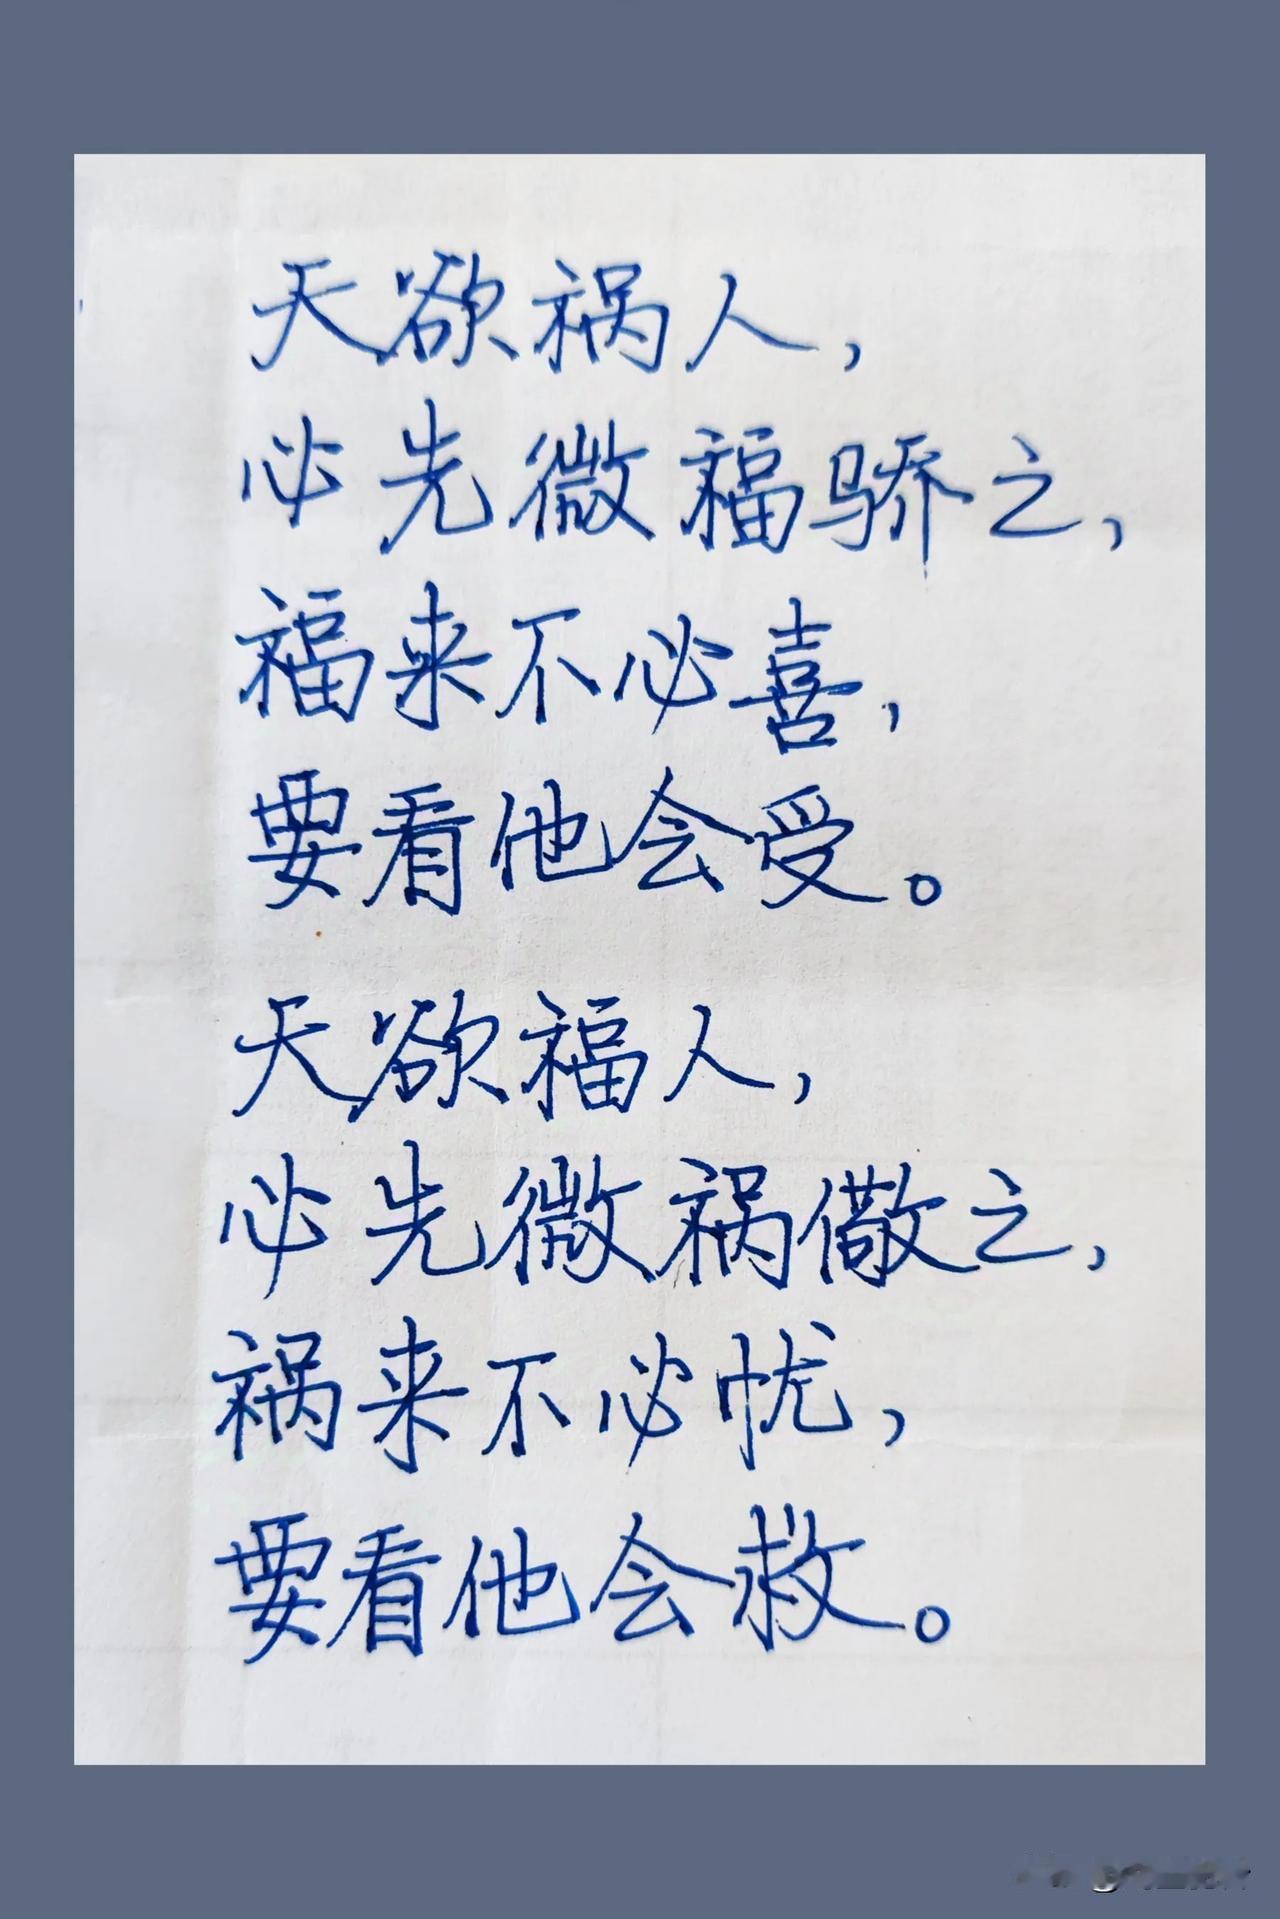 天欲祸人，
必先微福骄之，
福来不必喜，
要看他会受。
天欲福人，
必先微祸儆之，
祸来不必忧，
要看他会救。